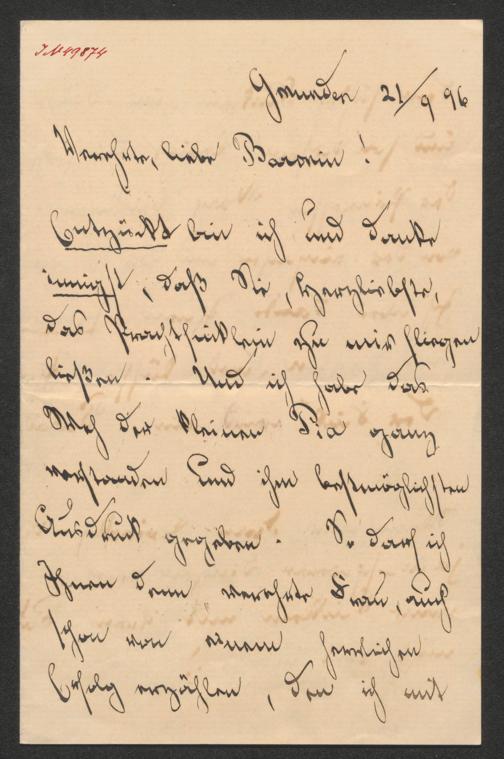 I.N. 49874
Gmunden 21/9 96
Verehrte, liebe Baronin!
Entzückt bin ich und danke
innigst, daß Sie, Herzliebste,
das Prachtstücklein zu mir fliegen
ließen. Und ich habe das
Weh der kleinen Pia ganz
verstanden und ihm bestmöglichsten
Ausdruck gegeben. So darf ich
Ihnen denn verehrte Frau, auch
schon von einem herrlichen
Erfolg erzählen, den ich mit